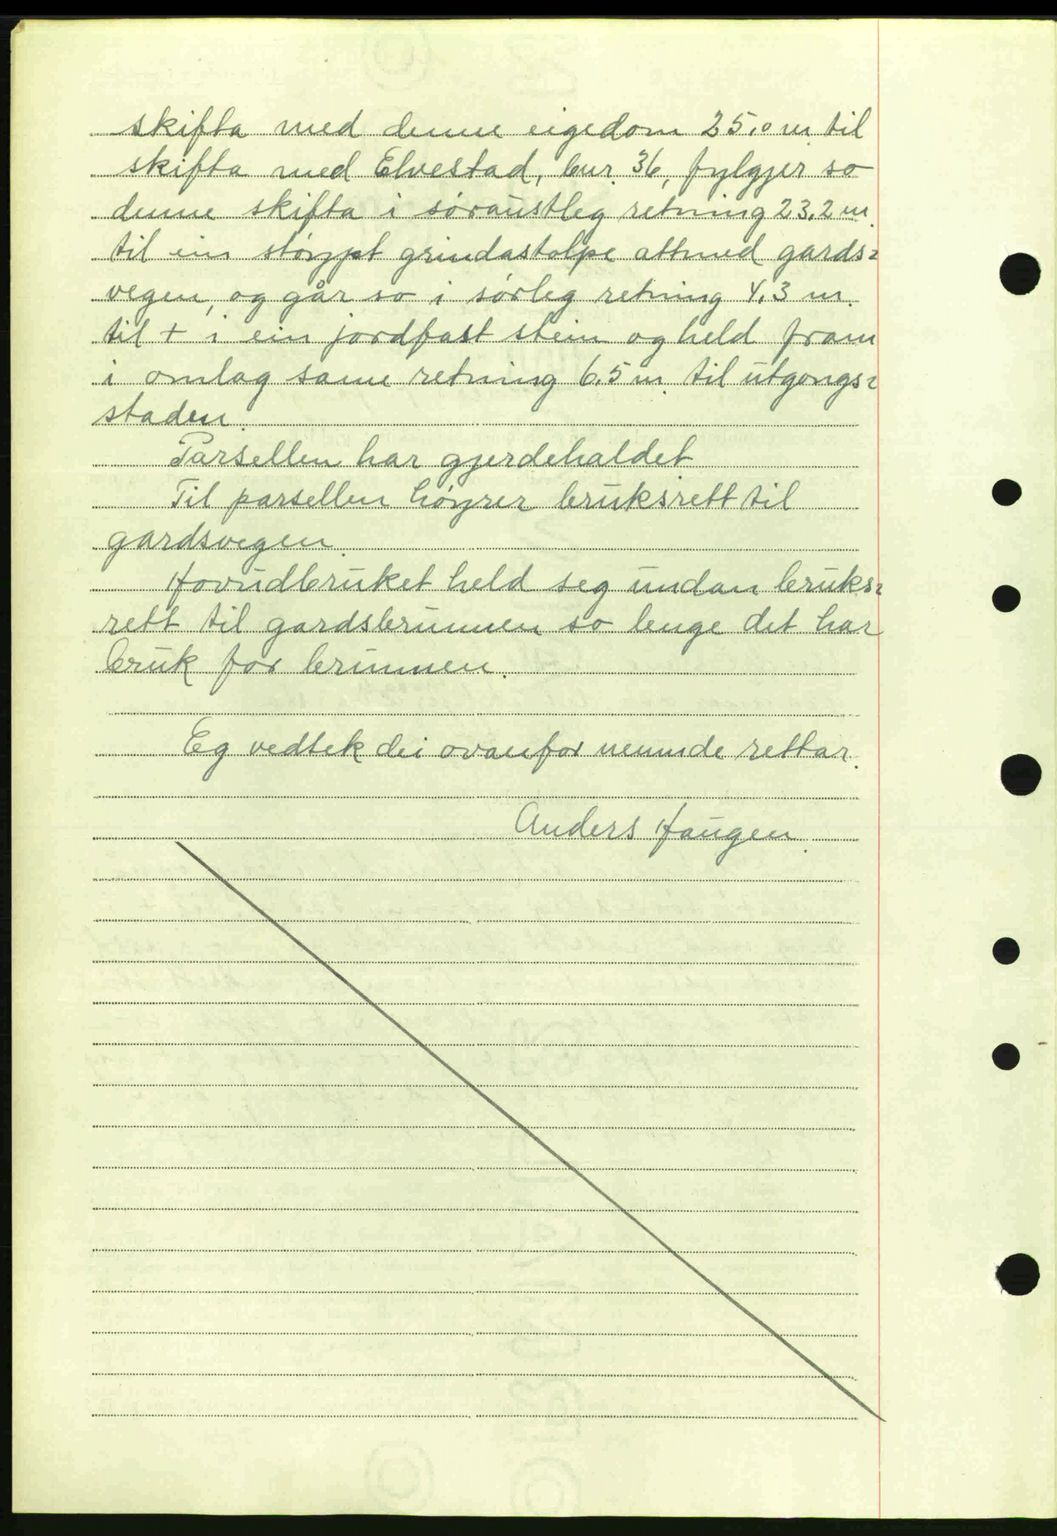 skifta med denne eigedom 25.0 m til
skifta med Elvestad, bnr. 36, fylgjer so
denne skifta i søraustleg retning 23.2 m.
til ein støypt grindastolpe attmed gards-
vegen, og går so i sørleg retning 4.3 m.
til + i ein jordfast stein og held fram
i omlag same retning 6.5 m. til utgongs-
staden.
Parsellen har gjerdehaldet
Til parsellen høyrer bruksrett til
gardsvegen.
Hovudbruket held seg undan bruks-
rett til gardsbrunnen so lenge det har
bruk for brunnen.
Eg vedtek dei ovanfor nemnde rettar.
Anders Haugen.